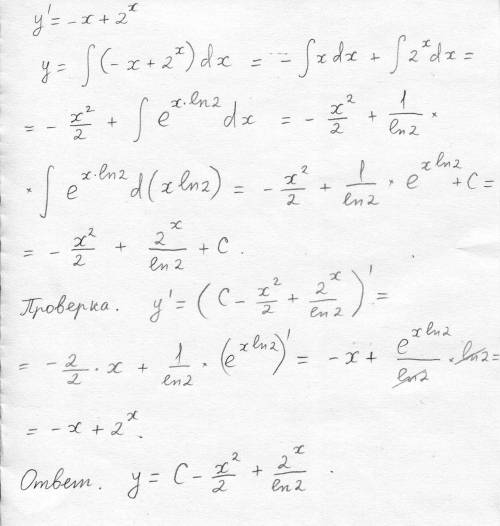 y' = -x + 2^x
y = ∫(-x + 2^x)dx = -∫xdx + ∫2^x dx =
= - x²/2 + ∫e^(x·ln2) dx = - x²/2 + 1/ln2 ×
× ∫e^(x·ln2) d(x ln2) = - x²/2 + 1/ln2 · e^(x ln2) + C =
= - x²/2 + 2^x/ln2 + C.
Проверка. y' = (C - x²/2 + 2^x/ln2)' =
= - 2/2 · x + 1/ln2 · (e^(x ln2))' = -x + e^(x ln2)/ln2 · ln2 =
= -x + 2^x.
Ответ. y = C - x²/2 + 2^x/ln2.